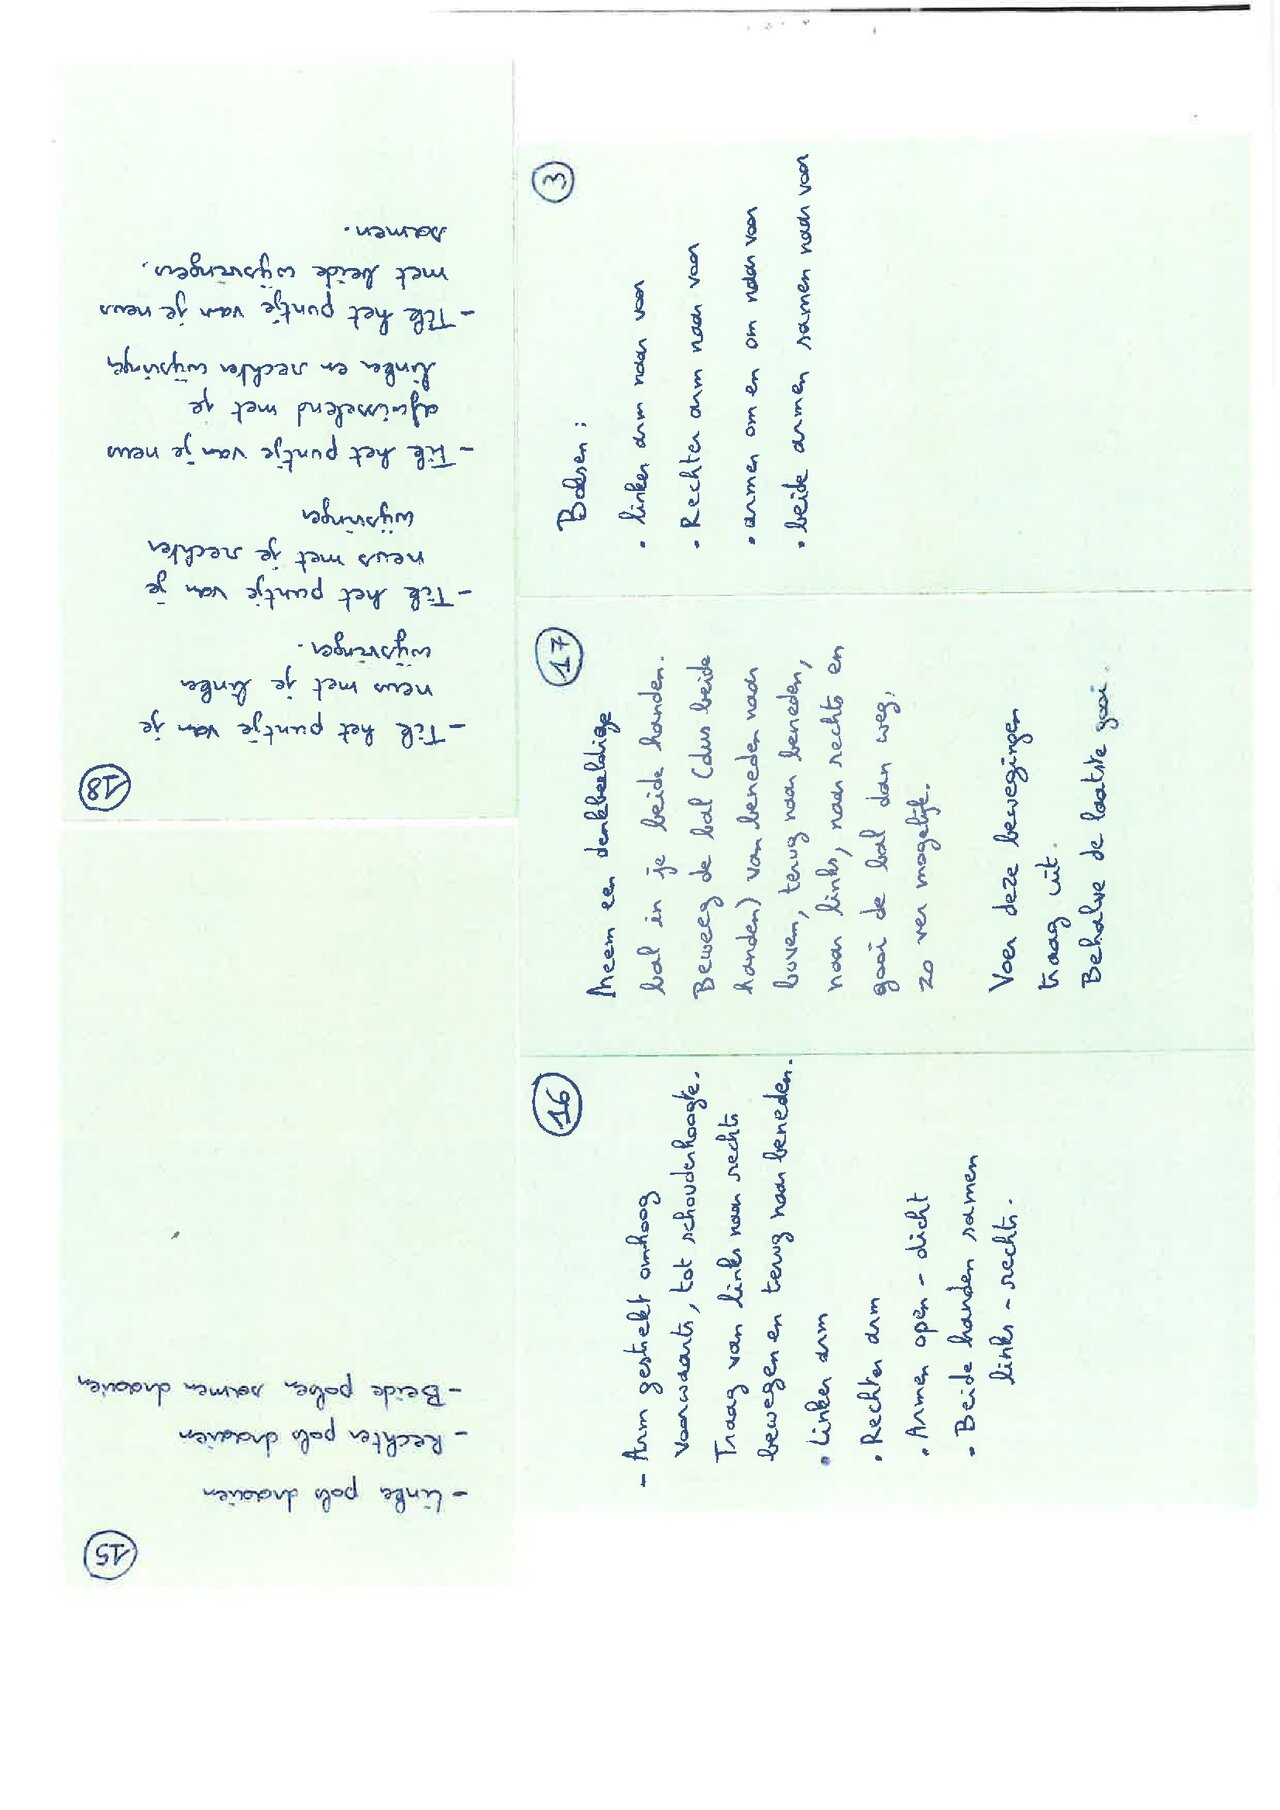 18
- Tik het puntje van je
neus met je linker
wijsvinger.
- Tik het puntje van je
neus met je rechter
wijsvinger
- Tik het puntje van je neus
afwisselend met je
linker en rechter wijsvinger
- Tik het puntje van je neus
met beide wijsvingers.
samen.
15
- Linker pols draaien
- Rechter pols draaien
- Beide polsen samen draaien
3
Boksen:
• linker arm naar voor
• Rechter arm naar voor
• armen om en om naar voor
• beide armen samen naar voor
17
Neem een denkbeeldige
bal in je beide handen.
Beweeg de bal (dus beide
handen) van beneden naar
boven, terug naar beneden,
naar links, naar rechts en
gooi de bal dan weg,
zo ver mogelijk.
Voer deze bewegingen
traag uit.
Behalve de laatste gooi.
16
- Arm gestrekt omhoog
voorwaarts, tot schouderhoogte.
Traag van links naar rechts
bewegen en terug naar beneden.
• Linker arm
• Rechter arm
• Armen open - dicht
• Beide handen samen
links - rechts.